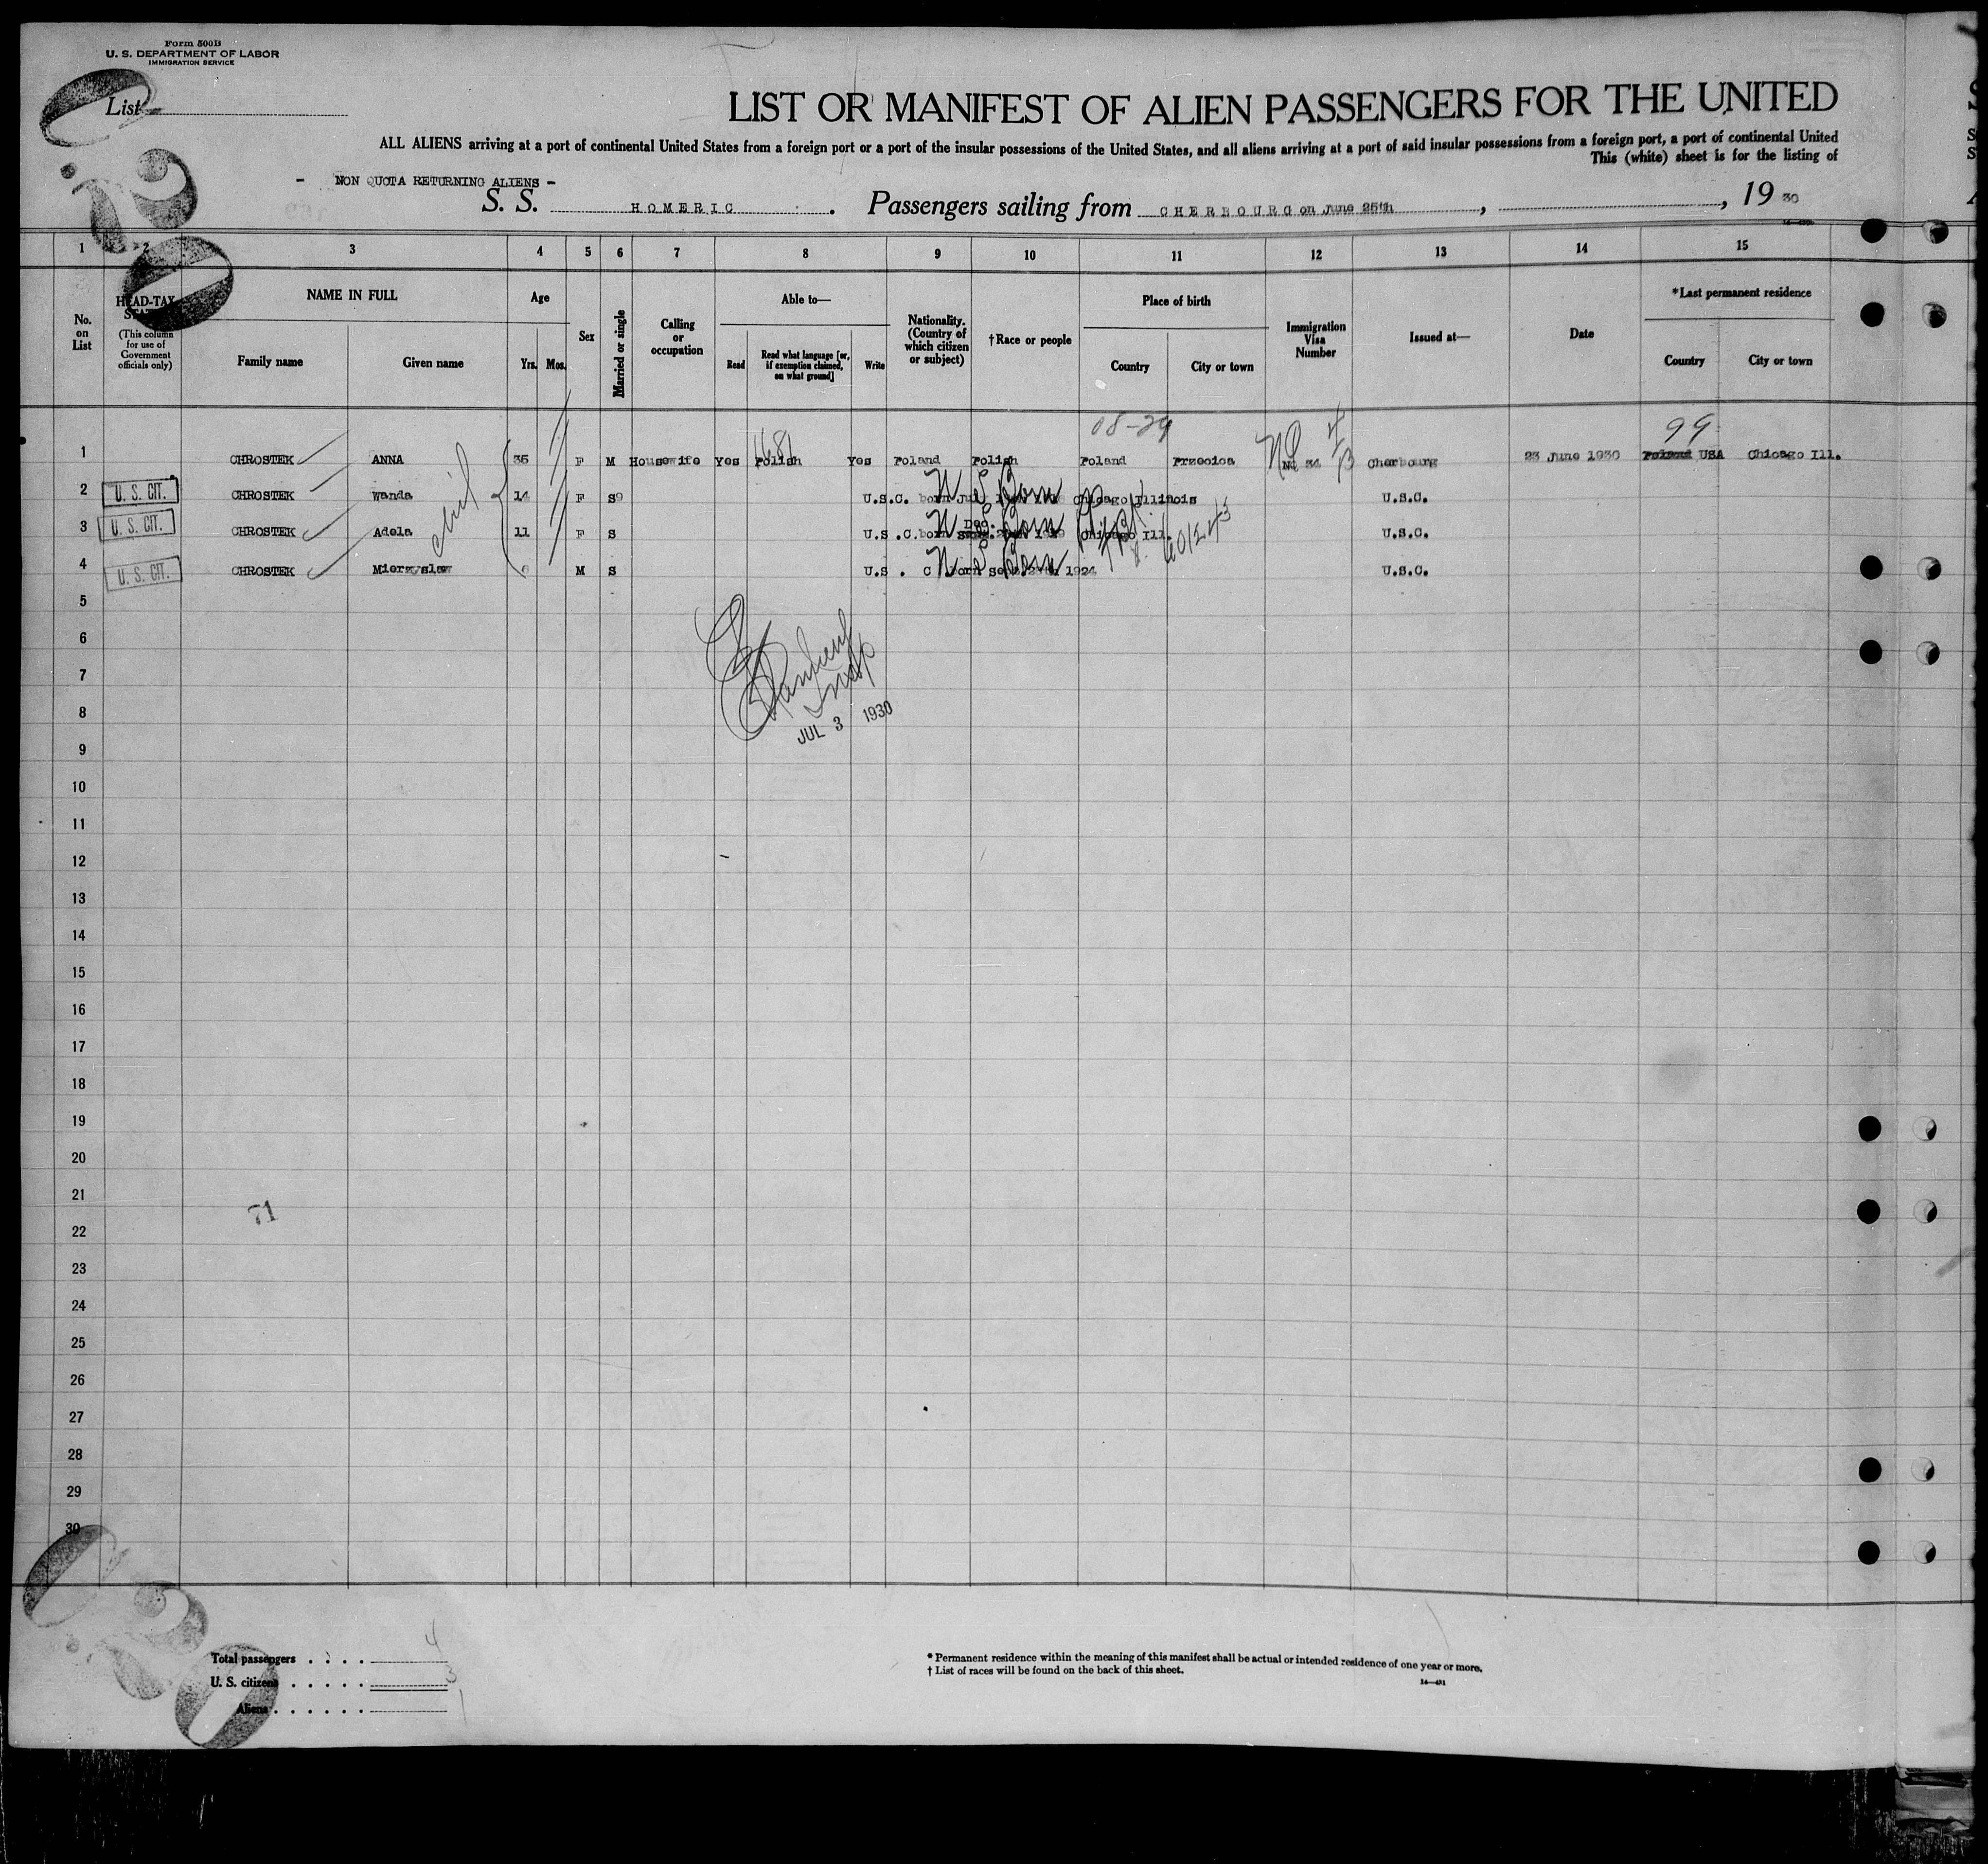 Form 500B
U. S. DEPARTMENT OF LABOR
IMMIGRATION SERVICE
List
LIST OR MANIFEST OF ALIEN PASSENGERS FOR THE UNITED
ALL ALIENS arriving at a port of continental United States from a foreign port or a port of the insular possessions of the United States, and all aliens arriving at a port of said insular possessions from a foreign port, a port of continental United
This (white) sheet is for the listing of
- NON QUOTA RETURNING ALIENS -
S. S. HOMERIC. Passengers sailing from CHERBOURG on June 25th, , 19 30
1 2 3 4 5 6 7 8 9 10 11 12 13 14 15
No. on List
HEAD-TAX STATUS (This column for use of Government officials only)
NAME IN FULL
Family name Given name
Age
Yrs. Mos.
Sex
Married or single
Calling or occupation
Able to—
Read Read what language [or, if exemption claimed, on what ground] Write
Nationality. (Country of which citizen or subject)
†Race or people
Place of birth
Country City or town
Immigration Visa Number
Issued at—
Date
*Last permanent residence
Country City or town
08-29 99
1 CHROSTEK ANNA 35 F M Housewife Yes Polish Yes Poland Polish Poland Przecica No 34 Cherbourg 23 June 1930 Poland USA Chicago Ill.
2 U. S. CIT. CHROSTEK Wanda 14 F S U.S.C. born Chicago Illinois U.S.C.
3 U. S. CIT. CHROSTEK Adela 11 F S U.S.C. born Dec. Chicago Ill. U.S.C.
4 U. S. CIT. CHROSTEK 6 M S U.S. C born 1924 U.S.C.
5
6
7
8
JUL 3 1930
9
10
11
12
13
14
15
16
17
18
19
20
21
71
22
23
24
25
26
27
28
29
30
Total passengers . . . . 4
U. S. citizens . . . . . 3
Aliens . . . . . . 1
* Permanent residence within the meaning of this manifest shall be actual or intended residence of one year or more.
† List of races will be found on the back of this sheet.